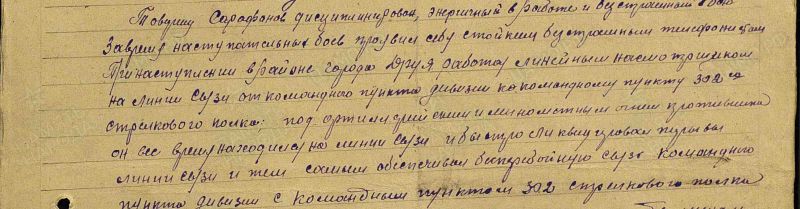 Товарищ Сарафонов дисциплинирован, энергичный в работе и бесстрашный в бою
За время наступательных боев проявил себя стойким бесстрашным телефонистом
При наступлении в районе города Друя работая линейным надсмотрщиком
на линии связи от командного пункта дивизии ко командному пункту 302го
стрелкового полка; под артиллерийским и минометным огнем противника
он все время находился на линии связи и быстро ликвидировал порывы
линии связи и тем самым обеспечивал бесперебойную связь командного
пункта дивизии с командным пунктом 302 стрелкового полка